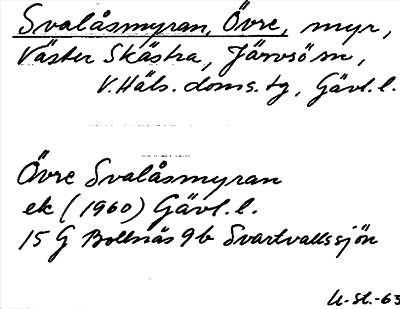 Svalåsmyran, Övre, myr,
Väster Skästra, Järvsö sn,
V. Häls. doms. tg, Gävl. l.
Övre Svalåsmyran
ek (1960) Gävl. l.
15 G Bollnäs 9b Svartvallssjön
U-st.-63